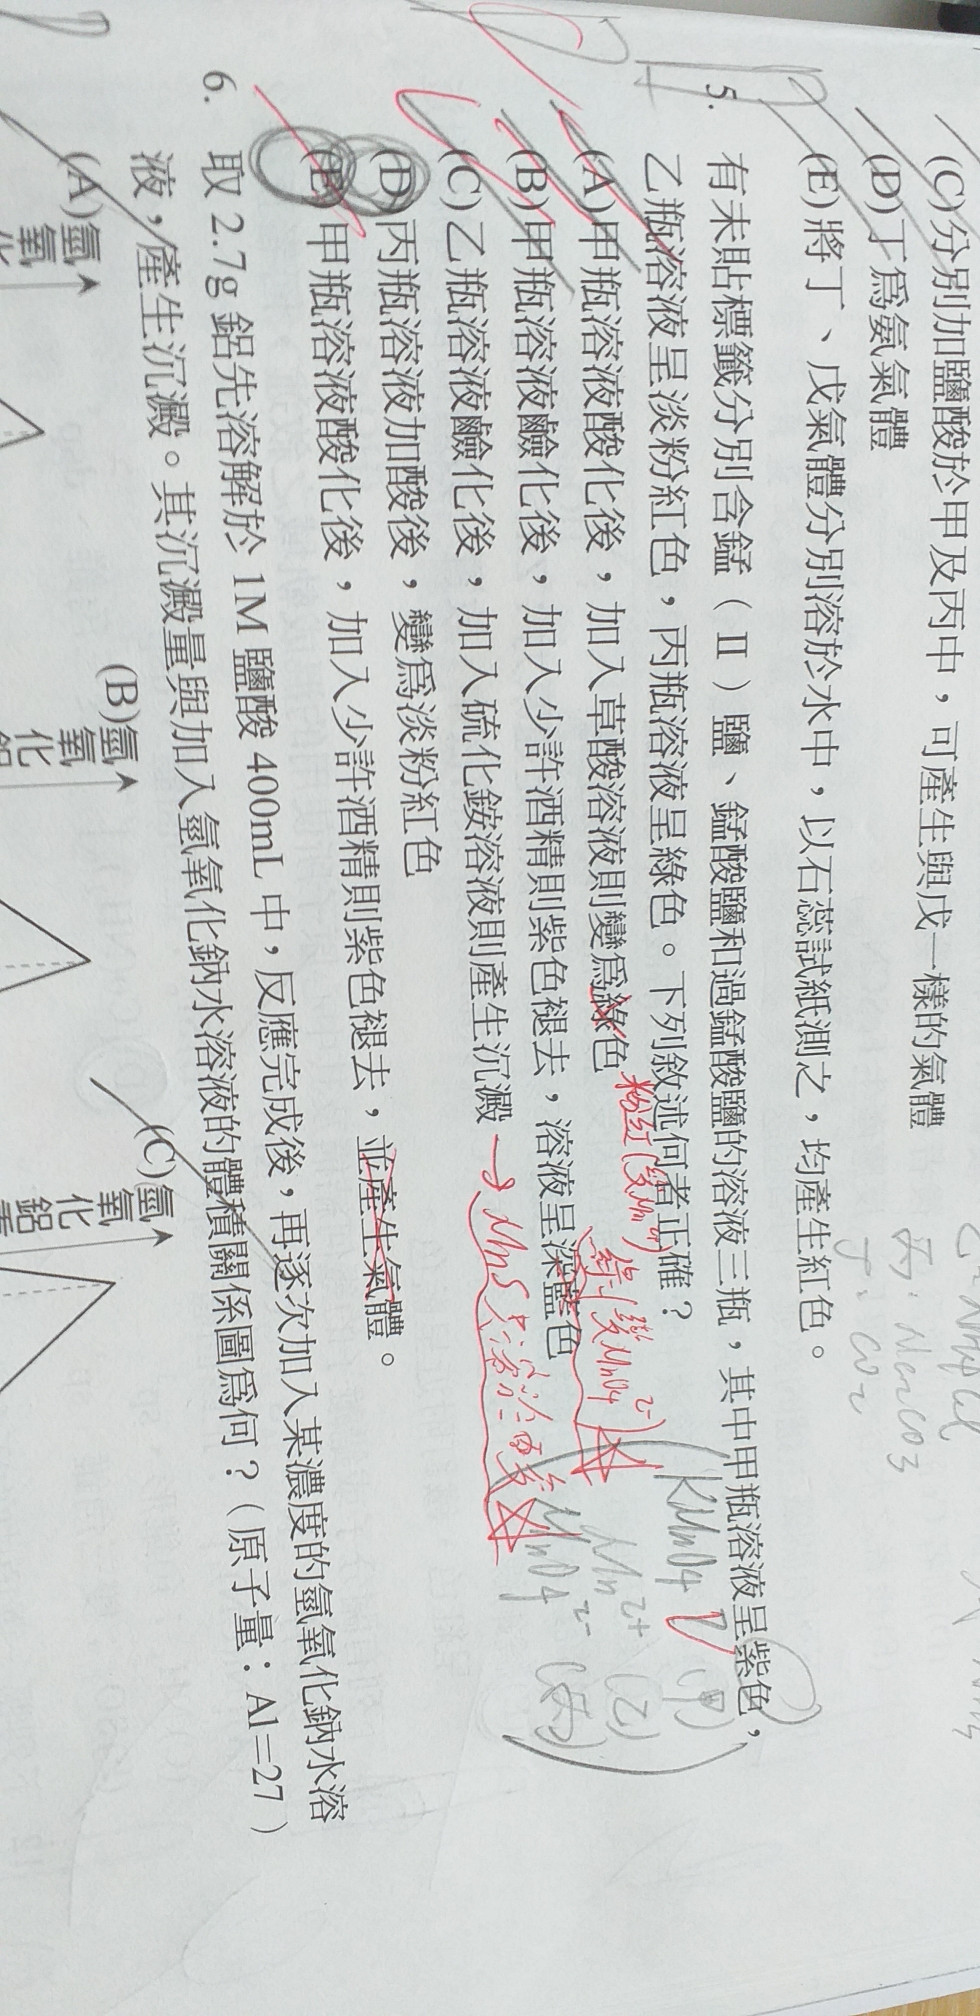 (C)分別加鹽酸於甲及丙中，可產生與戊一樣的氣體
(D)丁爲氨氣體
(E)將丁、戊氣體分別溶於水中，以石蕊試紙測之，均產生紅色。
丙：Na2CO3
丁：CO2
5. 有未貼標籤分別含錳（Ⅱ）鹽、錳酸鹽和過錳酸鹽的溶液三瓶，其中甲瓶溶液呈紫色，
乙瓶溶液呈淡粉紅色，丙瓶溶液呈綠色。下列敘述何者正確？
KMnO4 (甲)
Mn2+ (乙)
MnO4 2- (丙)
(A)甲瓶溶液酸化後，加入草酸溶液則變爲綠色
粉紅(變Mn2+)
(B)甲瓶溶液鹼化後，加入少許酒精則紫色褪去，溶液呈深藍色
綠(變MnO4 2-)
(C)乙瓶溶液鹼化後，加入硫化銨溶液則產生沉澱 → MnS
(D)丙瓶溶液加酸後，變爲淡粉紅色
(E)甲瓶溶液酸化後，加入少許酒精則紫色褪去，並產生氣體。
6. 取 2.7g 鋁先溶解於 1M 鹽酸 400mL 中，反應完成後，再逐次加入某濃度的氫氧化鈉水溶
液，產生沉澱。其沉澱量與加入氫氧化鈉水溶液的體積關係圖爲何？（原子量：Al=27）
(A)氫氧化
(B)氫氧化鋁
(C)氫氧化鋁